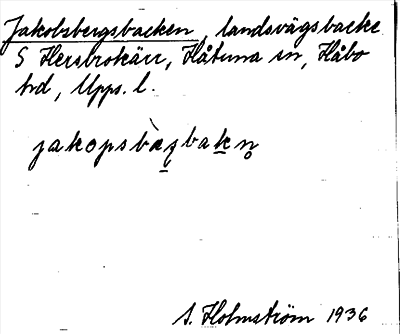 Jakobsbergsbacken, landsvägsbacke
S Hersbrokärr, Håtuna sn, Håbo
hd, Upps. l.
jakopsbæ̀ꞔbakn̥
S. Holmström 1936